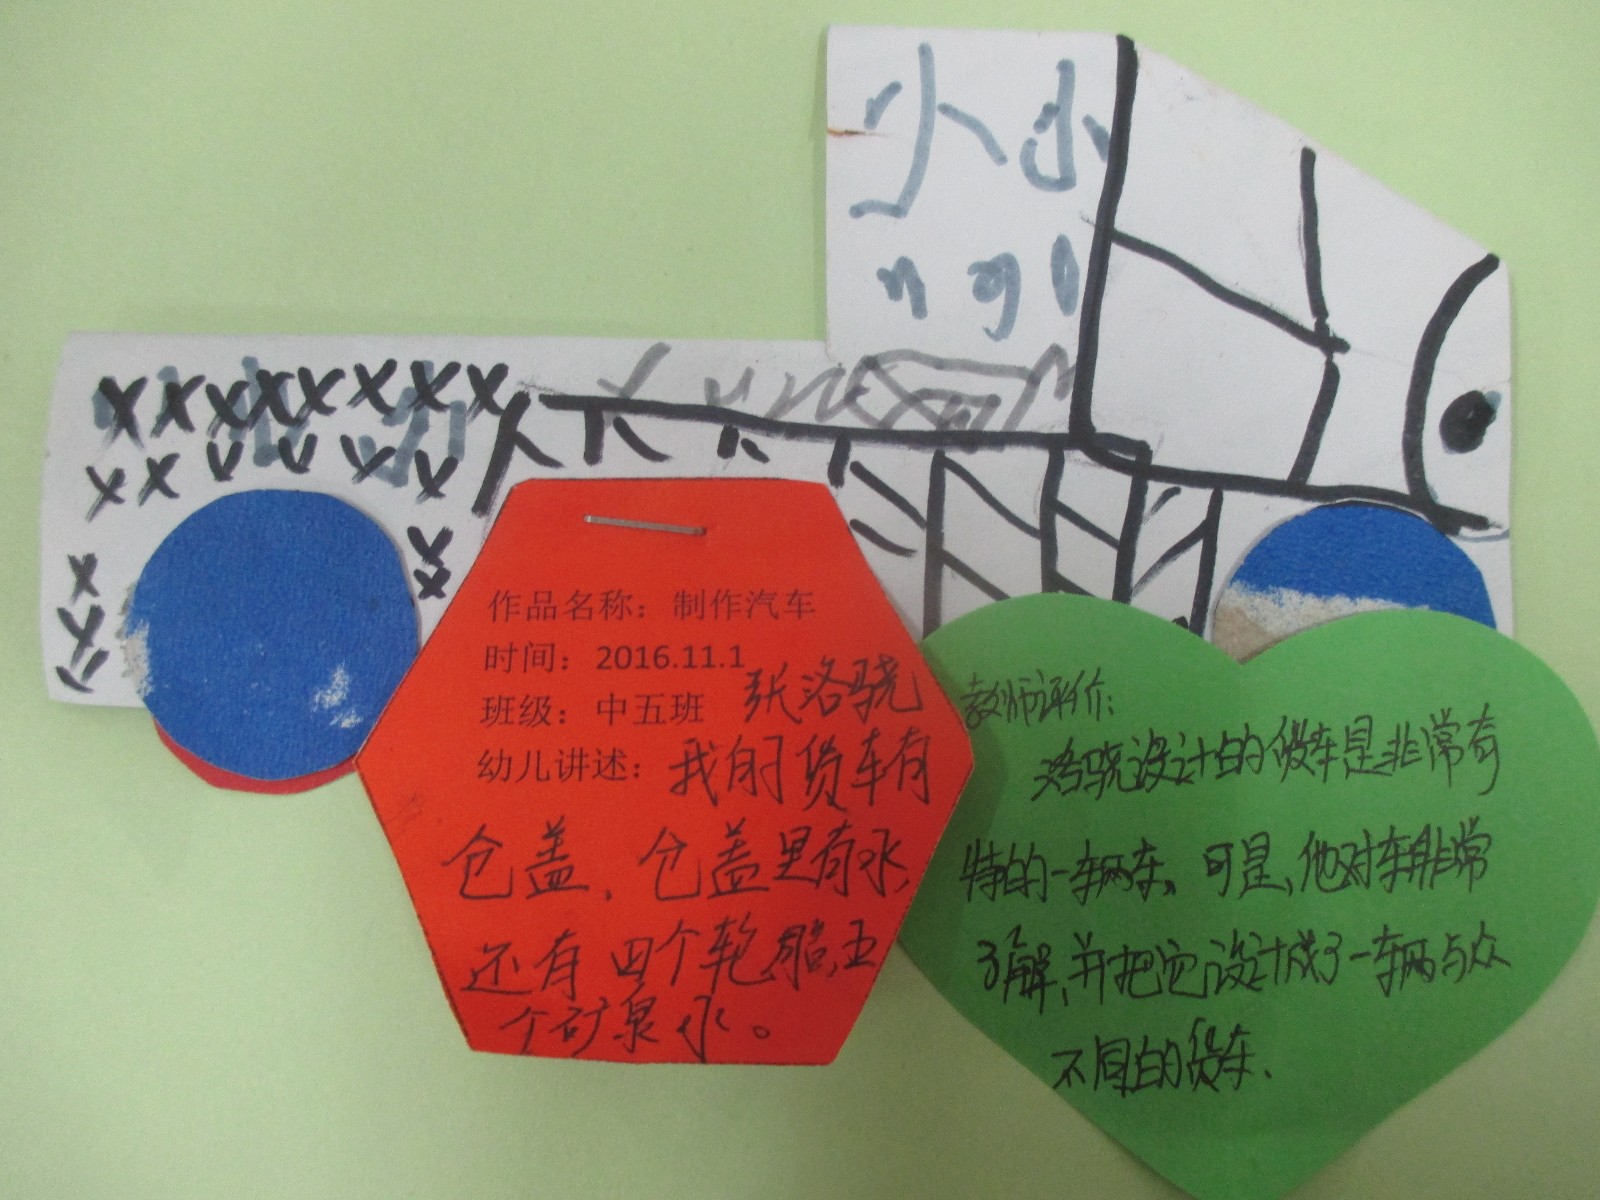 小 小
作品名称：制作汽车
时间：2016.11.1
班级：中五班 张洛骁
幼儿讲述：我的货车有
仓盖，仓盖里有水，
还有四个轮胎，五
个矿泉水。
教师评价：
洛骁设计的货车是非常有
特的一辆车。可是，他对车非常
了解，并把它设计成了一辆与众
不同的货车.